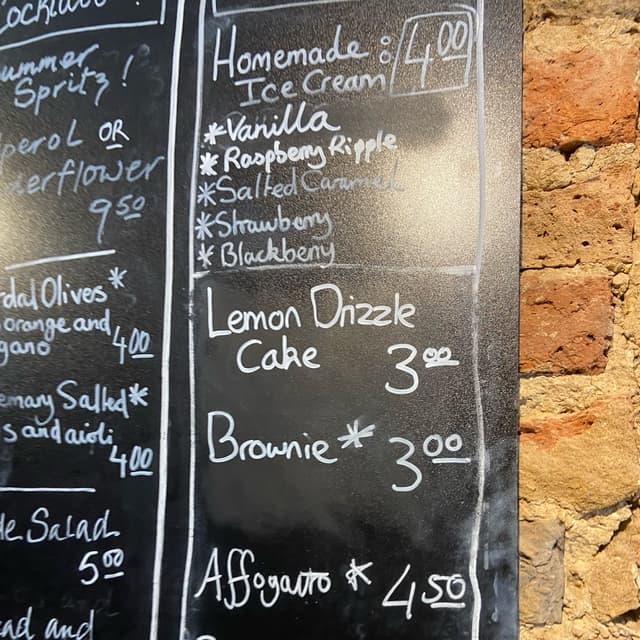 Summer
Spritz!
OR
9 50
Olives*
orange and
4 00
Salted*
and aioli
4 00
Salad
5 00
and
Homemade :
Ice Cream 4 00
*Vanilla
*Raspberry Ripple
*Salted Caramel
*Strawberry
*Blackberry
Lemon Drizzle
Cake 3 00
Brownie* 3 00
Affogatto * 4 50